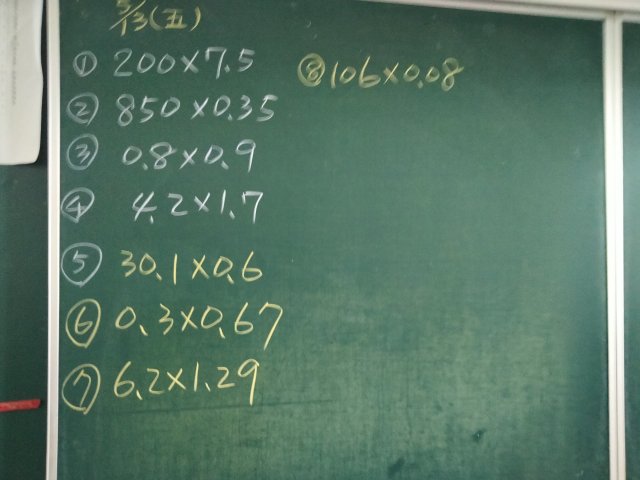 5/13(五)
① 200×7.5
② 850×0.35
③ 0.8×0.9
④ 4.2×1.7
⑤ 30.1×0.6
⑥ 0.3×0.67
⑦ 6.2×1.29
⑧ 106×0.08